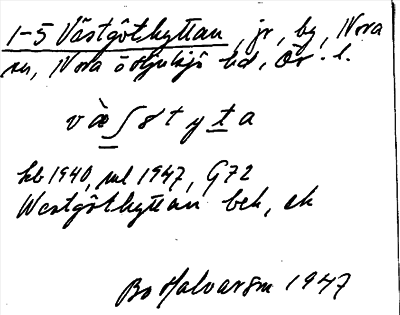 1-5 Västgöthyttan, jr, by, Nora
sn, Nora o Hjulsjö bd, Ör. l.
và̠ʃɤt y t̠ a
kb 1940, ml 1947, G72
Westgöthyttan bek, ek
Bo Halvarsm 1947